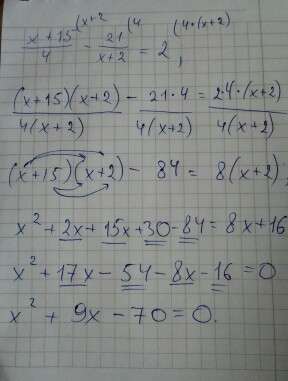 (x+2 (4 (4·(x+2)
(x+15)/4 - 21/(x+2) = 2,
(x+15)(x+2)/4(x+2) - 21·4/4(x+2) = 2·4·(x+2)/4(x+2)
(x+15)(x+2) - 84 = 8(x+2),
x² + 2x + 15x + 30 - 84 = 8x + 16
x² + 17x - 54 - 8x - 16 = 0
x² + 9x - 70 = 0.